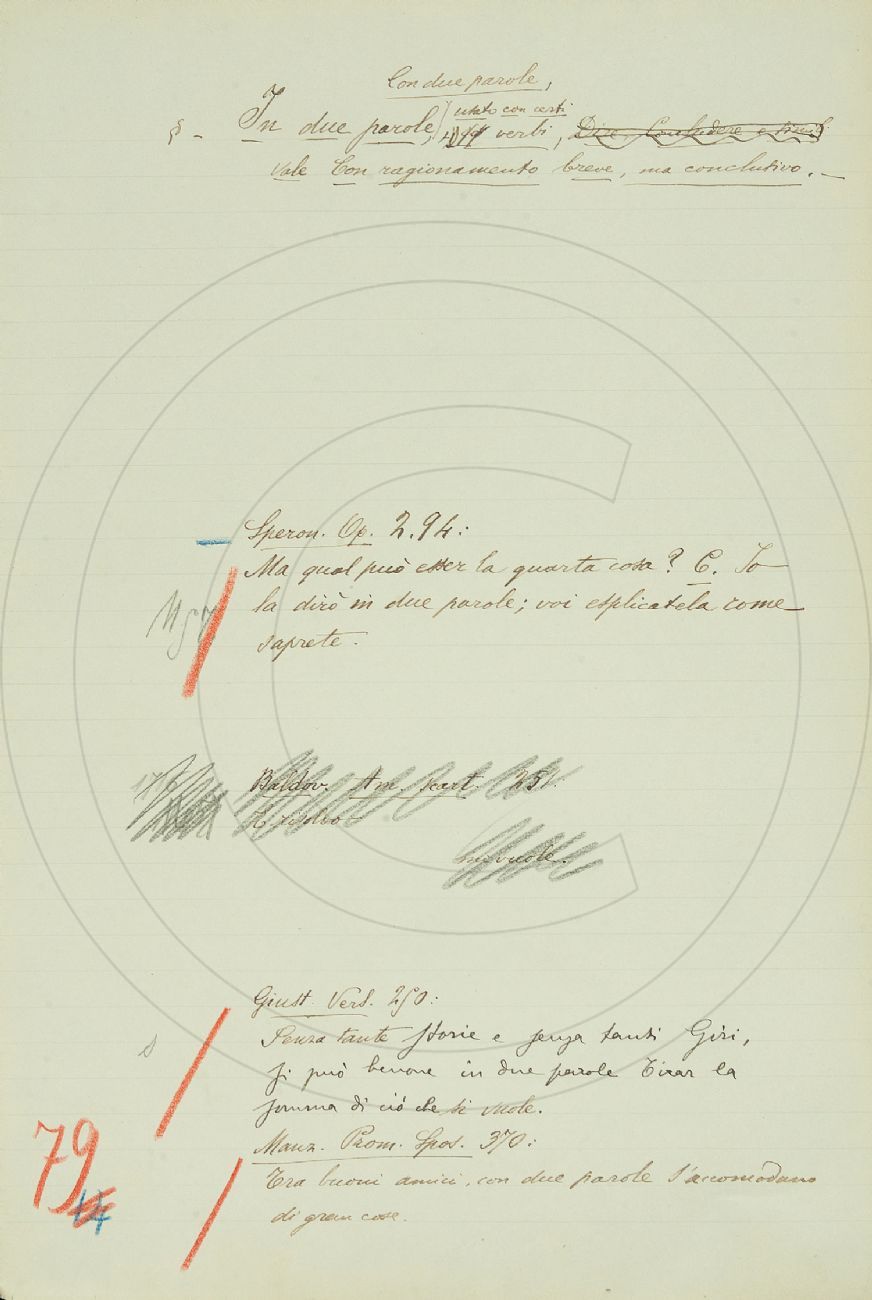 Con due parole,
§ - In due parole, usato con certi
verbi, Dire, Conchudere e simili
vale Con ragionamento breve, ma conclusivo. -
Speron. Op. 2.94:
Ma qual può esser la quarta cosa? C. Io
la dirò in due parole; voi esplicatela come
saprete.
Baldov. Am. scart. 251.
mi vuole.
Giust. Vers. 250:
Senza tante storie e senza tanti Giri,
si può benone in due parole Tirar la
somma di ciò che si vuole.
Manz. Prom. Spos. 370:
Tra buoni amici, con due parole s'accomodano
di gran cose.
79